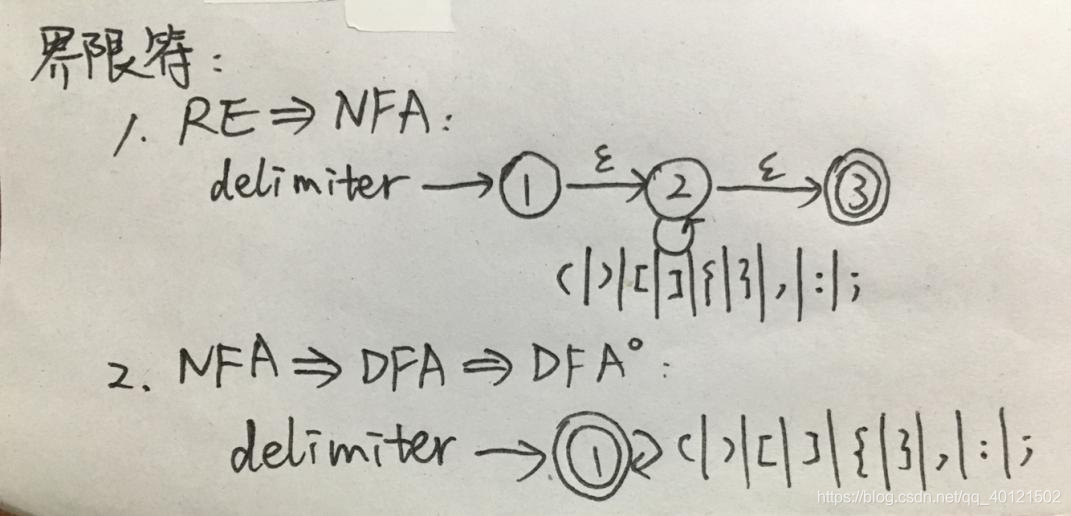 界限符:
1. RE ⇒ NFA:
delimiter → 1 ε 2 ε 3
(|)|[|]|{|}|,|:|;
2. NFA ⇒ DFA ⇒ DFA°:
delimiter → 1 (|)|[|]|{|}|,|:|;
https://blog.csdn.net/qq_40121502